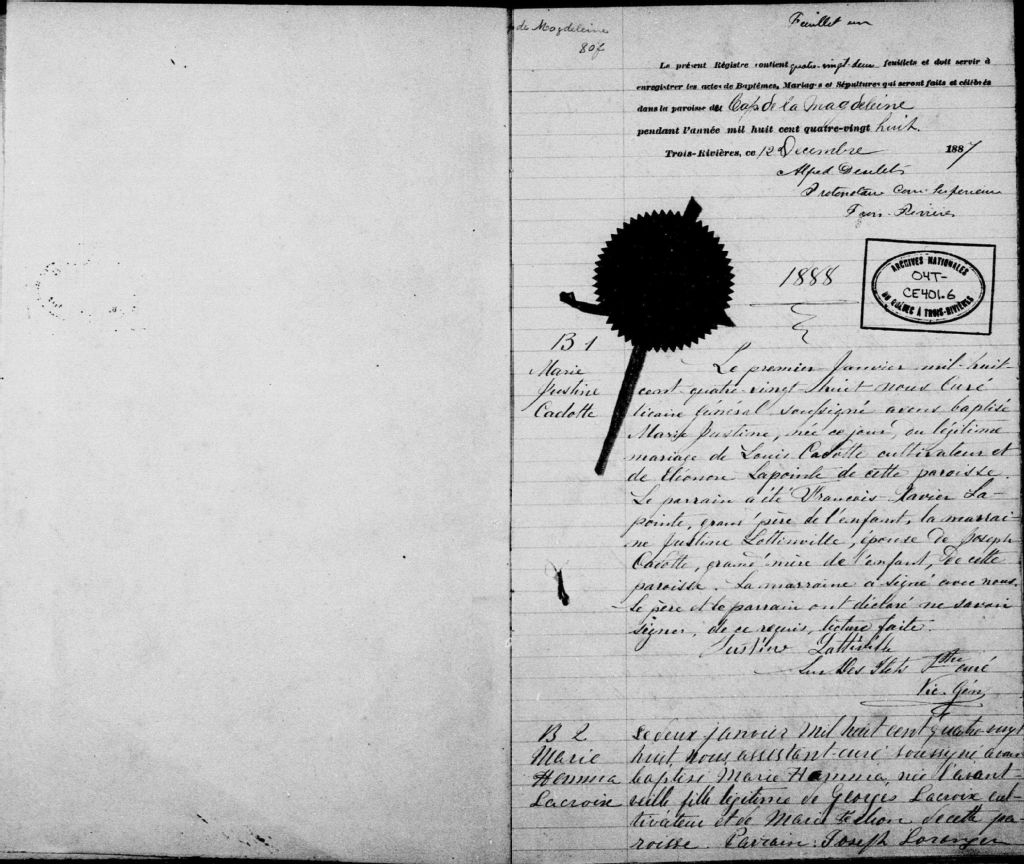 de Magdeleine
80f
Feuillet un
Le présent Régistre contient quatre-vingt-deux feuillets et doit servir à
enregistrer les actes de Baptêmes, Mariages et Sépultures qui seront faits et célébrés
dans la paroisse du Cap de la Magdeleine
pendant l'année mil huit cent quatre-vingt huit.
Trois-Rivières, ce 12 Decembre 1887
Alfred Desilets
Protonotaire Cour Superieure
Trois-Rivières
1888
ARCHIVES NATIONALES
04T-
CE401.6
DU QUÉBEC À TROIS-RIVIÈRES
B 1
Marie
Justine
Cadotte
Le premier Janvier mil-huit-
cent-quatre-vingt-huit nous Curé
Vicaire général soussigné avons baptisé
Marie Justine, née ce jour, du légitime
mariage de Louis Cadotte cultivateur et
de Eléonore Lapointe de cette paroisse.
Le parrain a été Francois-Xavier La-
pointe, grand père de l'enfant, la marrai-
ne Justine Lottinville, épouse de Joseph
Cadotte, grand'mère de l'enfant, de cette
paroisse. La marraine a signé avec nous.
Le père et le parrain ont déclaré ne savoir
signer, de ce requis, lecture faite.
Luc Desilets Ptre curé
Vic. Gén
B 2
Marie
Hemma
Lacroix
Le deux janvier mil huit cent quatre-vingt
huit, nous, assistant curé soussigné avons
baptisé Marie Hemma, née l'avant-
veille fille légitime de Georges Lacroix cul-
tivateur et de Marie de cette pa-
roisse. Parrain: Joseph Loranger